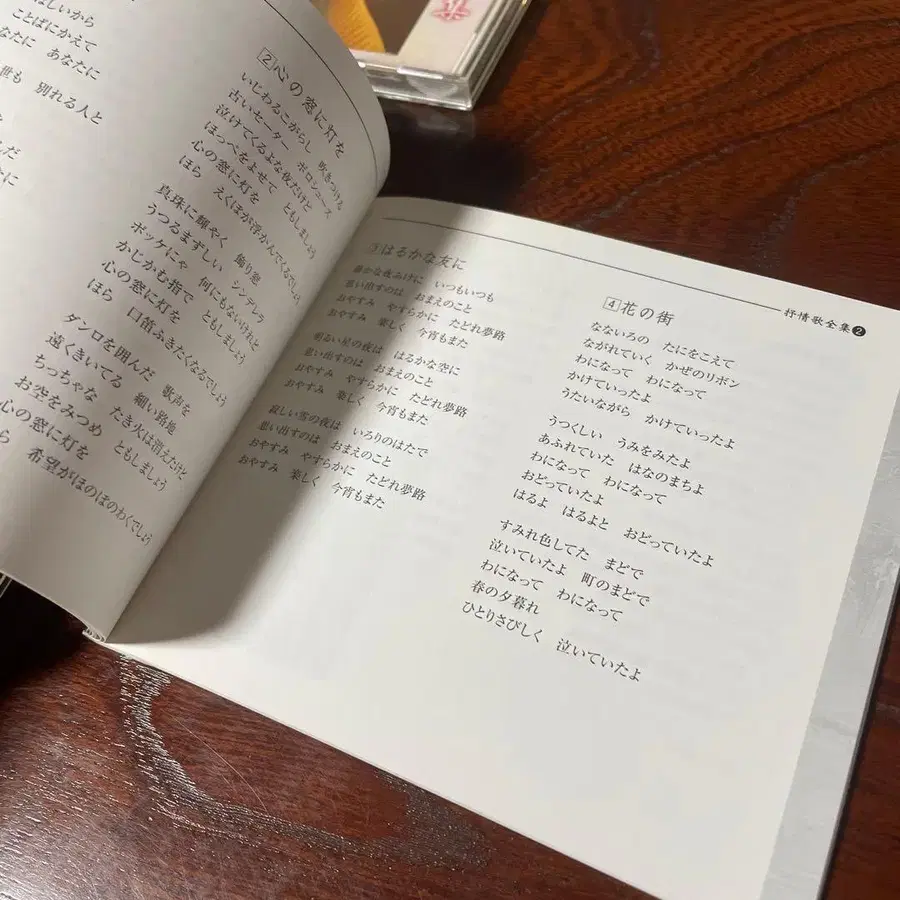 ほしいから
ことばにかえて
なたに　あなたに
世も　別れる人と
んだ
たに
2 心の窓に灯を
いじわるこがらし　吹きつける
古いセーター　ボロシューズ
泣けてくるよな夜だけど
ほっぺをよせて　ともしましょう
心の窓に灯を
ほら　えくぼが浮かんでくるでしょう
真珠に輝やく　飾り窓
うつるまずしい　シンデレラ
ポッケにゃ　何にもないけれど
かじかむ指で　ともしましょう
心の窓に灯を
ほら　口笛ふきたくなるでしょう
ダンロを囲んだ　歌声を
遠くきいてる　細い路地
ちっちゃな　たき火は消えたけど
お空をみつめ　ともしましょう
心の窓に灯を
ら　希望がほのぼのわくでしょう
抒情歌全集❷
3 はるかな友に
静かな夜ふけに　いつもいつも
思い出すのは　おまえのこと
おやすみ　やすらかに　たどれ夢路
おやすみ　楽しく　今宵もまた
明るい星の夜は　はるかな空に
思い出すのは　おまえのこと
おやすみ　やすらかに　たどれ夢路
おやすみ　楽しく　今宵もまた
寂しい雪の夜は　いろりのはたで
思い出すのは　おまえのこと
おやすみ　やすらかに　たどれ夢路
おやすみ　楽しく　今宵もまた
4 花の街
なないろの　たにをこえて
ながれていく　かぜのリボン
わになって　わになって
かけていったよ
うたいながら　かけていったよ
うつくしい　うみをみたよ
あふれていた　はなのまちよ
わになって　わになって
おどっていたよ
はるよ　はるよと　おどっていたよ
すみれ色してた　まどで
泣いていたよ　町のまどで
わになって　わになって
春の夕暮れ
ひとりさびしく　泣いていたよ